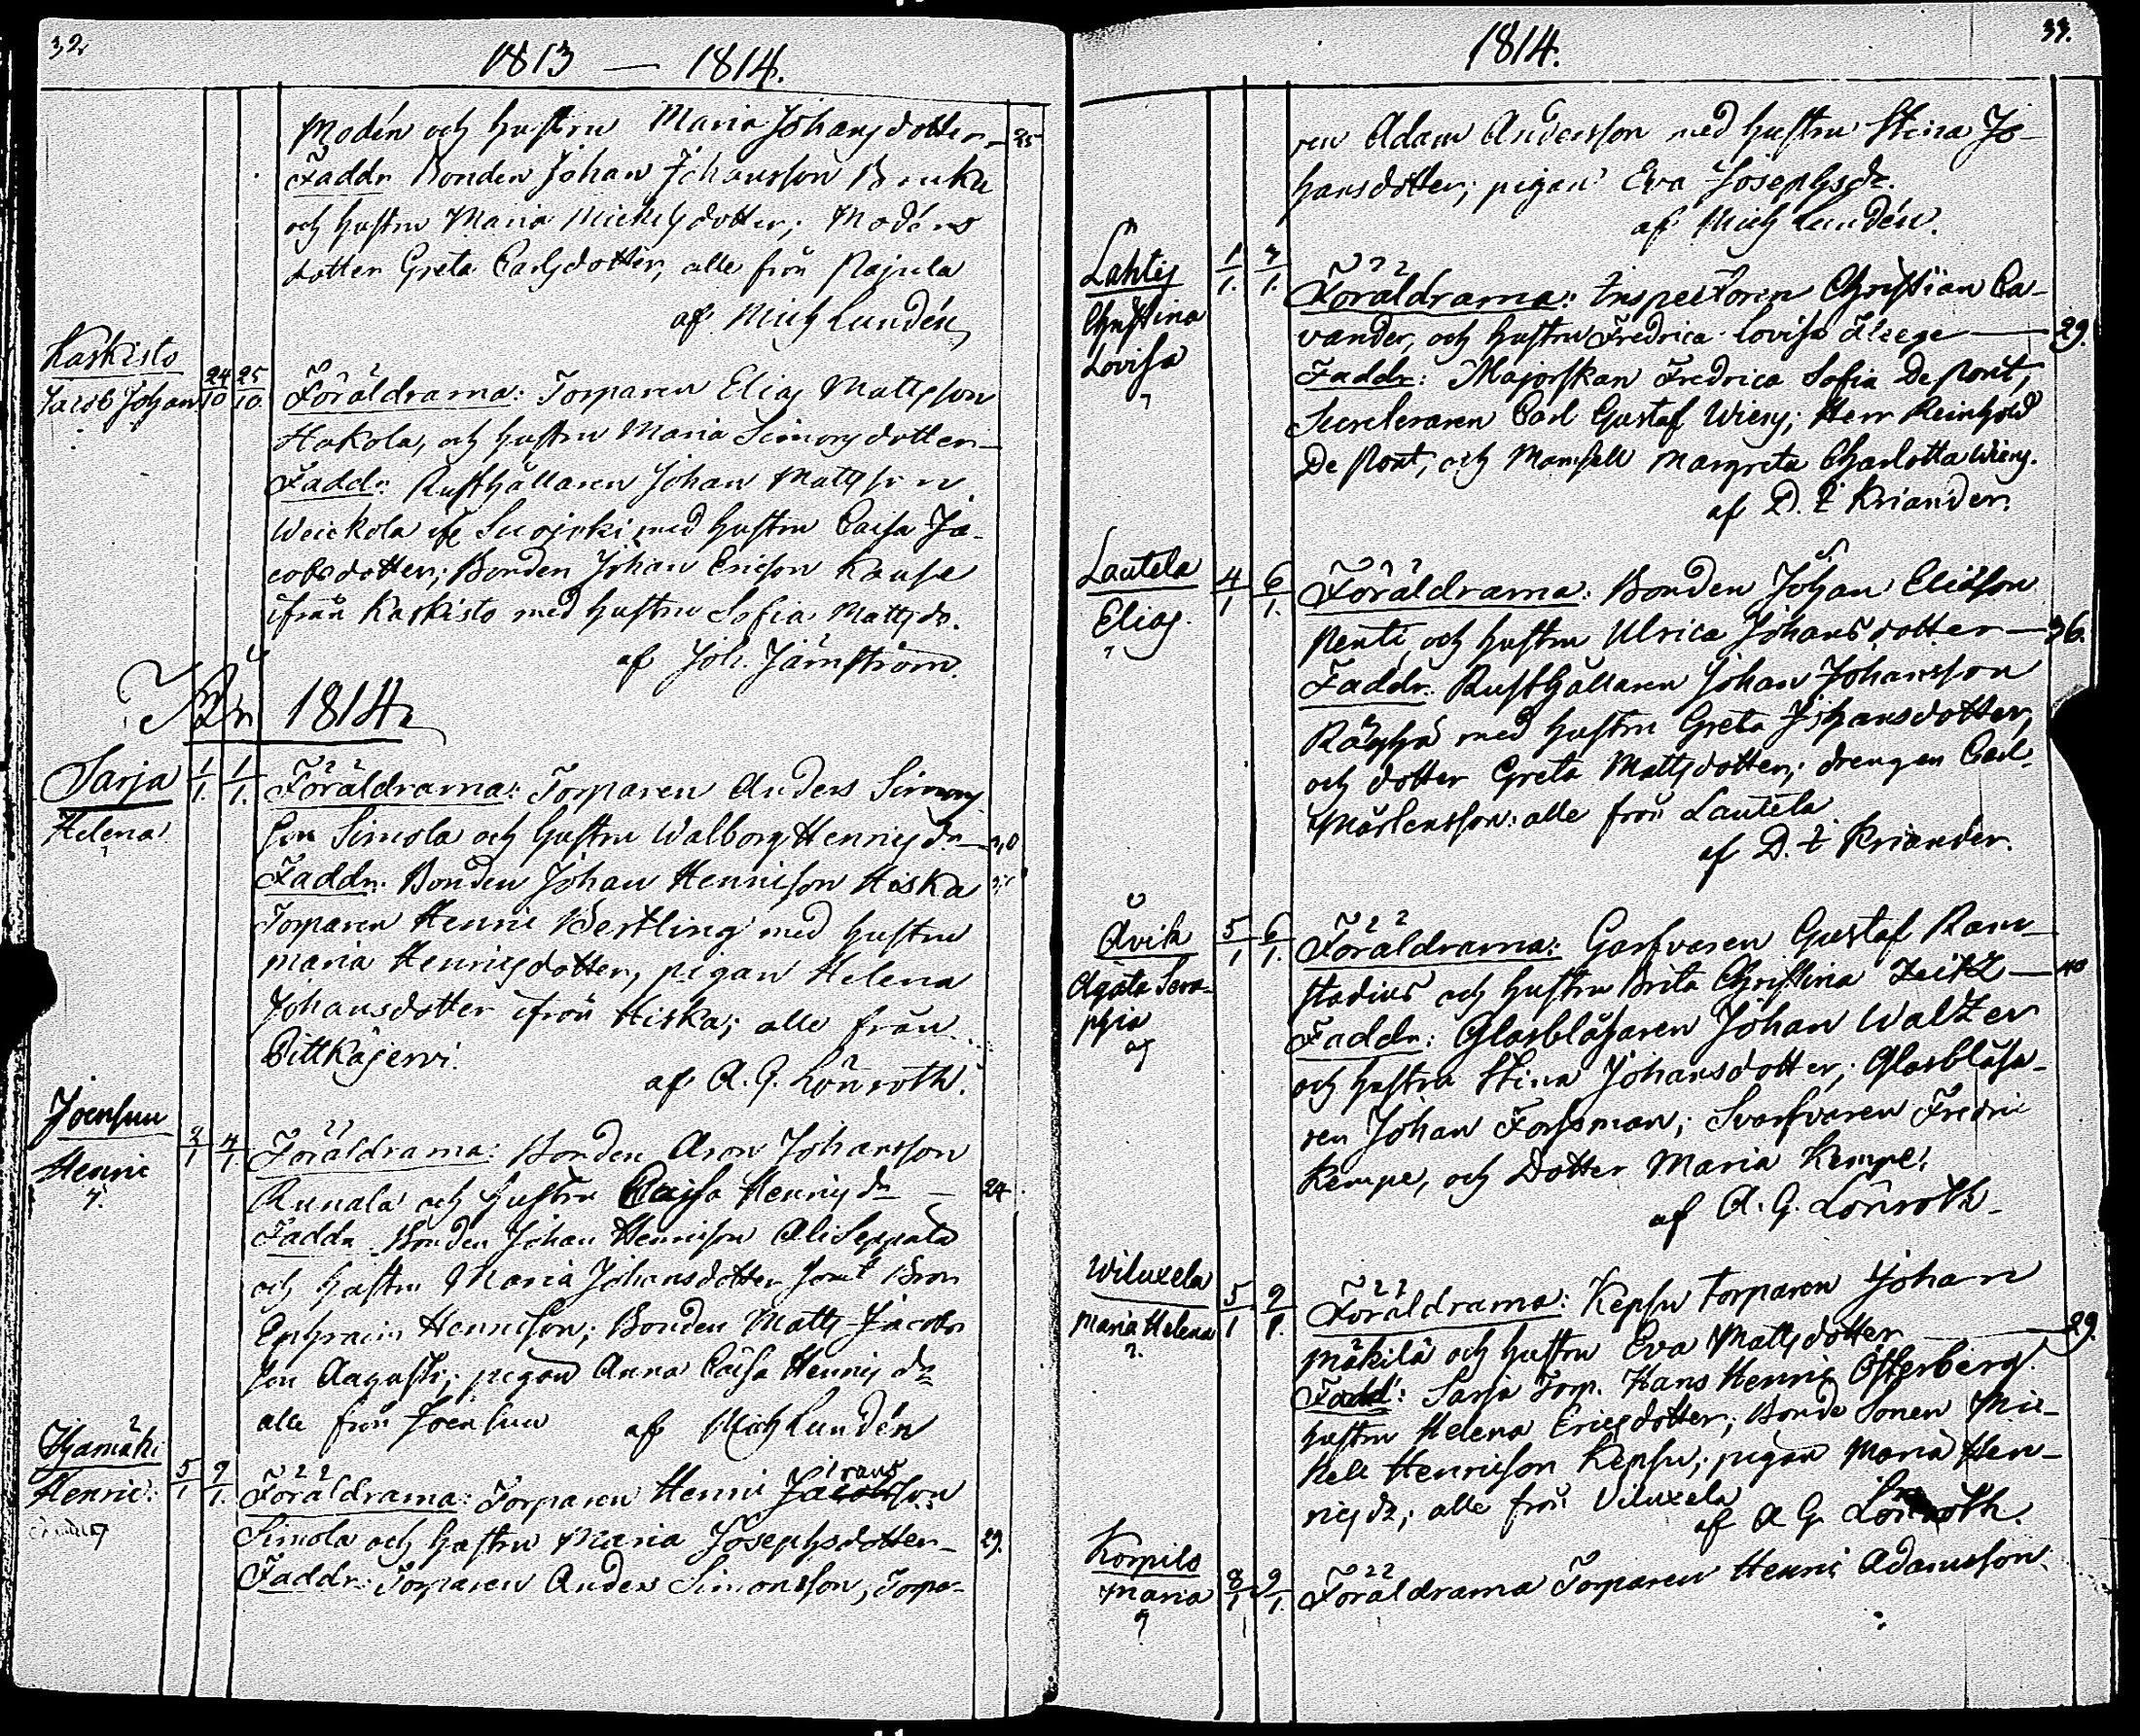 32.
1813 — 1814.
Modén och hustru Maria Johansdotter — 25
Faddr. Bonden Johan Johansson
och hustru Maria Michelsdotter; Modéns
dotter Greta Carlsdotter, alle från Pajula
af Mich Lundén
Kaskisto
Jacob Johan 24/10 25/10 Föräldrarna: Torparen Elias Mattsson
Hakola, och hustru Maria Simonsdotter —
Faddr: Rusthållaren Johan Mattsson
Weickola med hustru Caisa Ja-
cobsdotter; Bonden Johan Ericson
ifrån Kaskisto med hustru Sofia Mattsdr.
af Joh. Järnström.
1814
Sarja 1/1. 1/1. Föräldrarna: Torparen Anders Simons
Helena son Simola och hustru Walborg Henricsdr — 30
Faddr. Bonden Johan Henricson Hiska
Torparen Henric Bertling med hustru
Maria Henricsdotter, pigan Helena
Johansdotter ifrån Hiska; alle från
Pittkäjervi.
af A. G. Lönroth.
Joensuu
Henric 2/1 4/1 Föräldrarna: Bonden Aron Johansson
Annala och hustru Caisa Henricsdr — 24
Faddr Bonden Johan Henricson Aliseppälä
och hustru Maria Johansdotter samt Bron
Ephraim Henricson; Bonden Matts Jacobs
son Aagusti; pigan Anna Caisa Henricsdr
alle från Joensuu af Mich Lundén
Ihamäki
Henric: 5/1 9/1. Föräldrarna: Torparen Henric Jacobsson
Simola och hustru Maria Josephsdotter — 29.
Faddr: Torparen Anders Simonsson, Torpa-
33.
1814.
ren Adam Andersson med hustru Stina Jo-
hansdotter; pigan Eva Josephsdr.
af Mich Lundén.
Lahtis 1/1. 3/1. Föräldrarna: Inspectoren Christian Ca-
Christina vander, och hustru Fredrica Lovisa Fleege — 29.
Lovisa Faddr: Majorskan Fredrica Sofia De Pont,
Secreteraren Carl Gustaf Wiery; Herr Reinhold
De Pont, och Mamsell Margreta Charlotta Wiery.
af D. E Kriander.
Lautela 4/1 6/1. Föräldrarna: Bonden Johan Eliasson
Elias. Penti och hustru Ulrica Johansdotter — 36.
Faddr. Rusthållaren Johan Johansson
Räyhä med hustru Greta Johansdotter,
och dotter Greta Mattsdotter; drengen Carl
Mårtensson: alle från Lautela
af D. E Kriander.
Åvik 5/1 6/1. Föräldrarna: Garfvaren Gustaf Ram-
Agata Sera- stadius och hustru Brita Christina Zeitz — 40
phia Faddr: Glasblåsaren Johan Walzer
och hustru Stina Johansdotter; Glasblåsa-
ren Johan Forssman; Svarfvaren Fredric
Kempe, och Dotter Maria Kempe.
af A. G. Lönroth.
Wiluxela 5/1 9/1. Föräldrarna: Kepsu torparen Johan
Maria Helena Mäkilä och hustru Eva Mattsdotter — 29.
Fadd: Sarja Torp. Hans Henric Österberg
hustru Helena Ericsdotter; Bonde Sonen Mic-
kell Henricson Kepsu; pigan Maria Hen-
ricsdr; alle från Viluxela
af A G Lönroth.
Korpilo
Maria 8/1 9/1. Föräldrarna Torparen Henric Adamsson